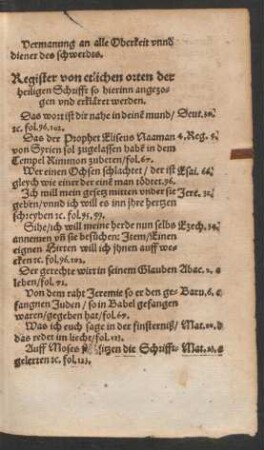 Vermanung an alle Oberkeit vnnd
diener des schwerdts.
Register von etlichen orten der
heiligen Schrifft so hierinn angezo-
gen vnd erkläret werden.
Das wort ist dir nahe in deinē mund/ Deut. 30.
ꝛc. fol. 96. 102.
Das der Prophet Eliseus Naaman 4. Reg. 5.
von Syrien sol zugelassen habē in dem
Tempel Rimmon zubeten/ fol. 67.
Wer einen Ochsen schlachtet / der ist Esai. 66.
gleych wie einer der einē man tödtet. 96.
Ich will mein gesetz mitten vnder sie Jere. 31.
geben/ vnnd ich will es inn jhre hertzen
schreyben ꝛc. fol. 95. 99.
Sihe/ ich will meine herde nun selbs Ezech. 34.
annemen vñ sie besüchen: Item/ Einen
eignen Hirten will ich jhnen auff we-
cken ꝛc. fol. 96. 102.
Der gerechte wirt in seinem Glauben Abac. 2.
leben/ fol. 71.
Von dem raht Jeremie so er den ge- Baru. 6.
fangnen Juden / so in Babel gefangen
waren/ gegeben hat/ fol. 67.
Was ich euch sage in der finsterniß/ Mat. 10.
das redet im liecht/ fol. 102.
Auff Moses sitzen die Schrifft- Mat. 23.
gelerten ꝛc. fol. 123.